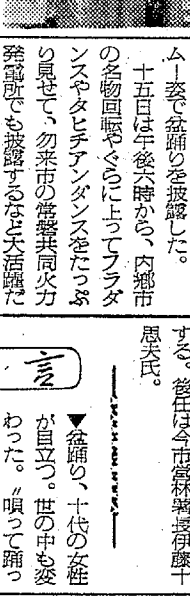 ムー姿で盆踊りを披露した。
十五日は午後六時から、内郷市
の名物回転やぐらに上ってフラダ
ンスやタヒチアンダンスをたっぷ
り見せて、勿来市の常磐共同火力
発電所でも披露するなど大活躍だ
する。後任は今市営林署長伊藤十
思夫氏。
言
▼盆踊り、十代の女性
が目立つ。世の中も変
わった。〝唄って踊っ